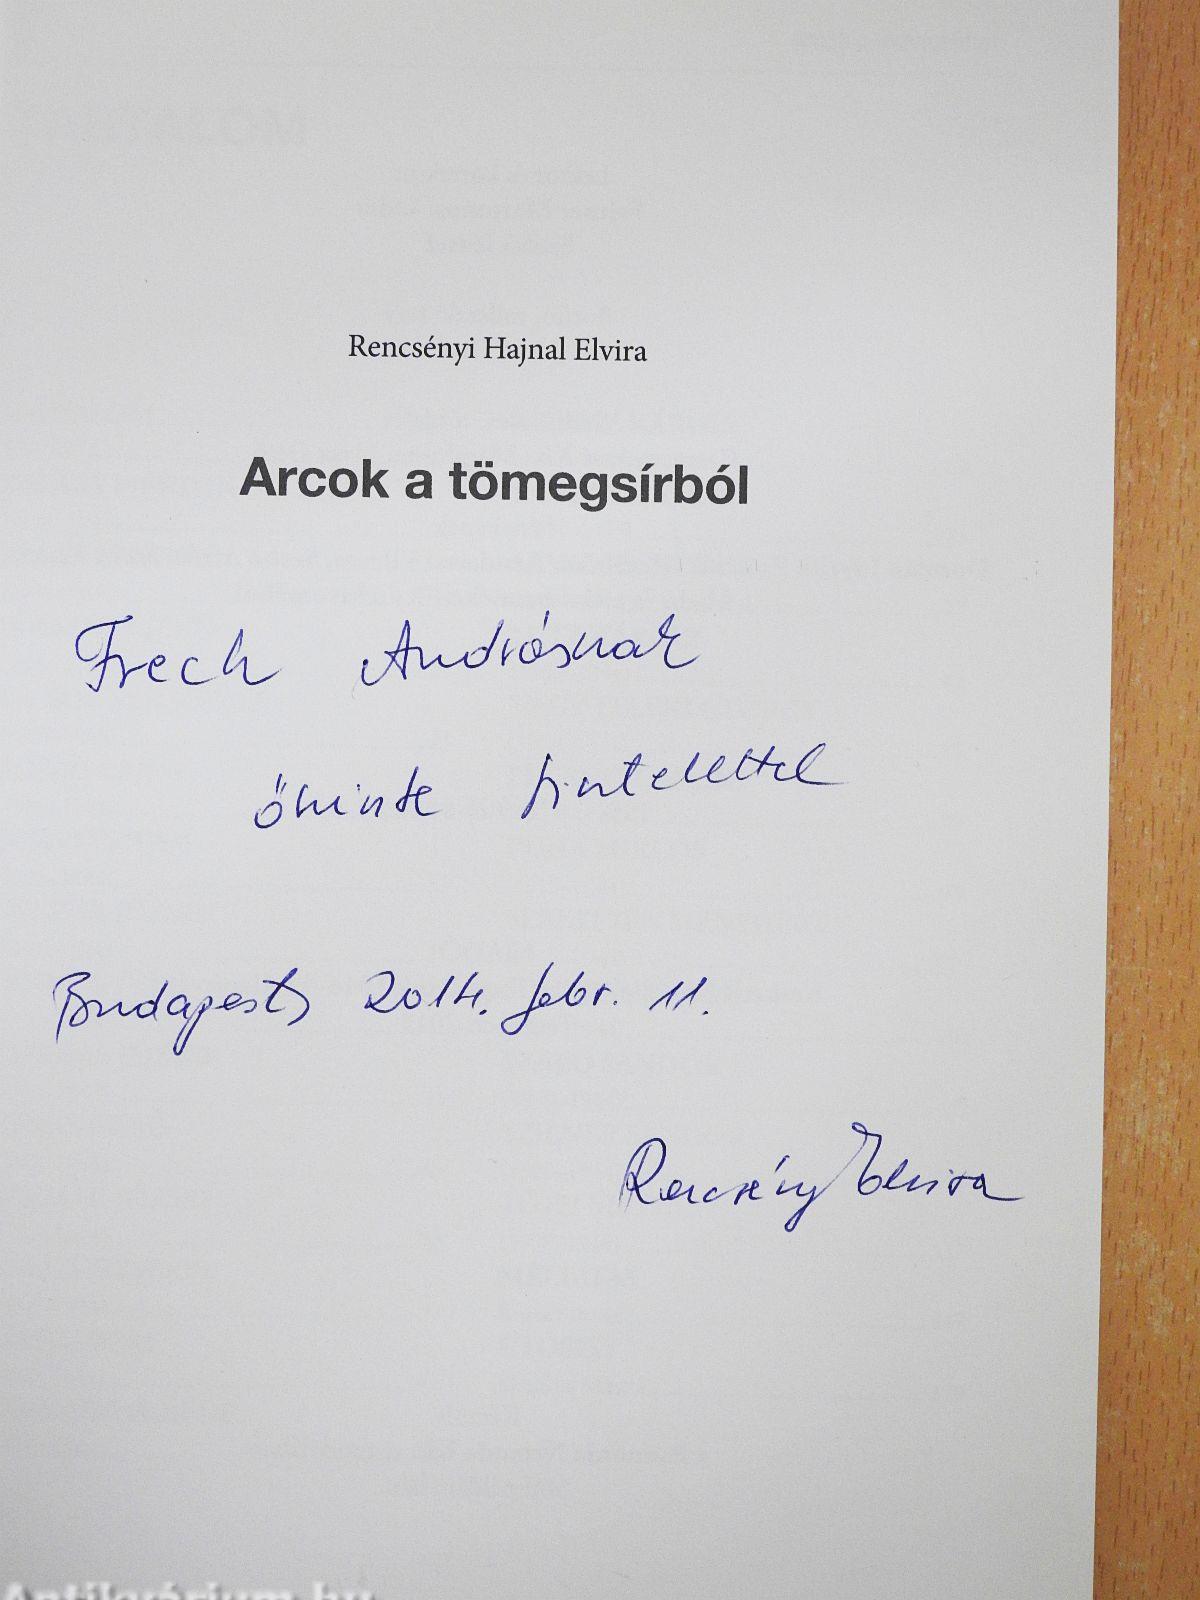 Rencsényi Hajnal Elvira
Arcok a tömegsírból
Frech Andrásnak
őszinte tisztelettel
Budapest, 2014. febr. 11.
Rencsényi Elvira
Antikvárium.hu